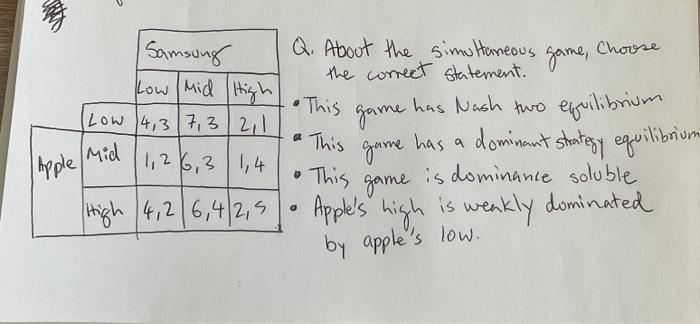 Samsung
Low Mid High
Low 4,3 7,3 2,1
Apple Mid 1,2 6,3 1,4
High 4,2 6,4 2,5
Q. About the simultaneous game, Choose
the correct statement.
• This game has Nash two equilibrium
• This game has a dominant strategy equilibrium
• This game is dominance soluble
• Apple's high is weakly dominated
by apple's low.